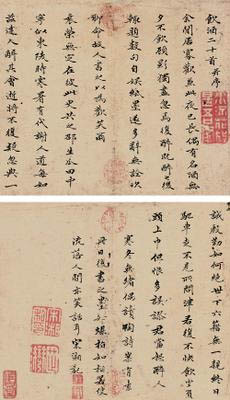 飲酒二十首 并序
余閒居寡歡兼比夜已長偶有名酒無
夕不飲顧影獨盡忽焉復醉既醉之後
輒題數句自娛紙墨遂多辭無詮次
聊命故人書之以為歡笑爾
衰榮無定在彼此更共之邵生瓜田中
寧似東陵時寒暑有代謝人道每如
茲達人解其會逝將不復疑忽與一
誠殷勤如何絕世下六籍無一親終日
馳車走不見所問津若復不快飲空負
頭上巾但恨多謬誤君當恕醉人
寒冬無緒偶讀陶詩
書之墨
流落人間亦笑話耳